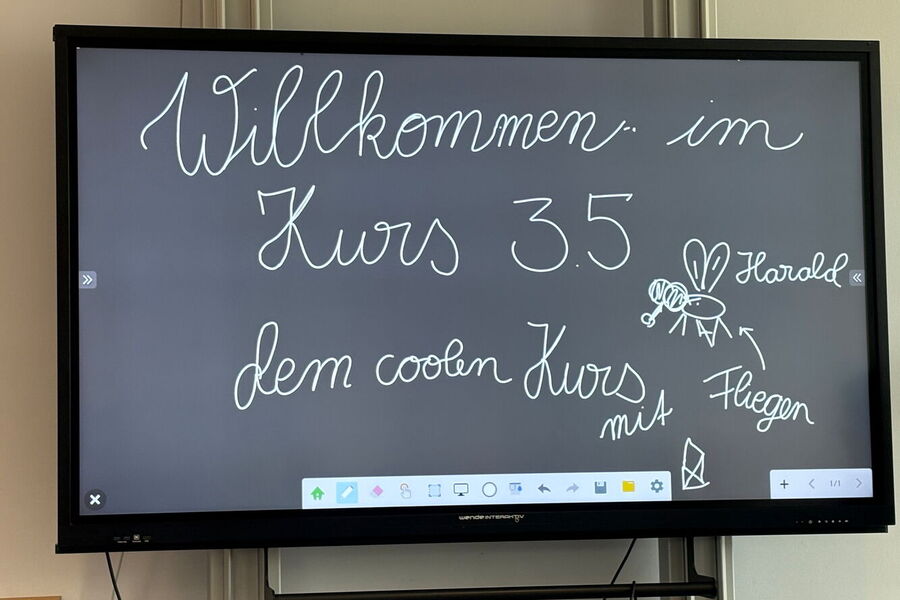 Willkommen im
Kurs 3.5
Harald
dem coolen Kurs
mit
Fliegen
1/1
wende INTERAKTIV